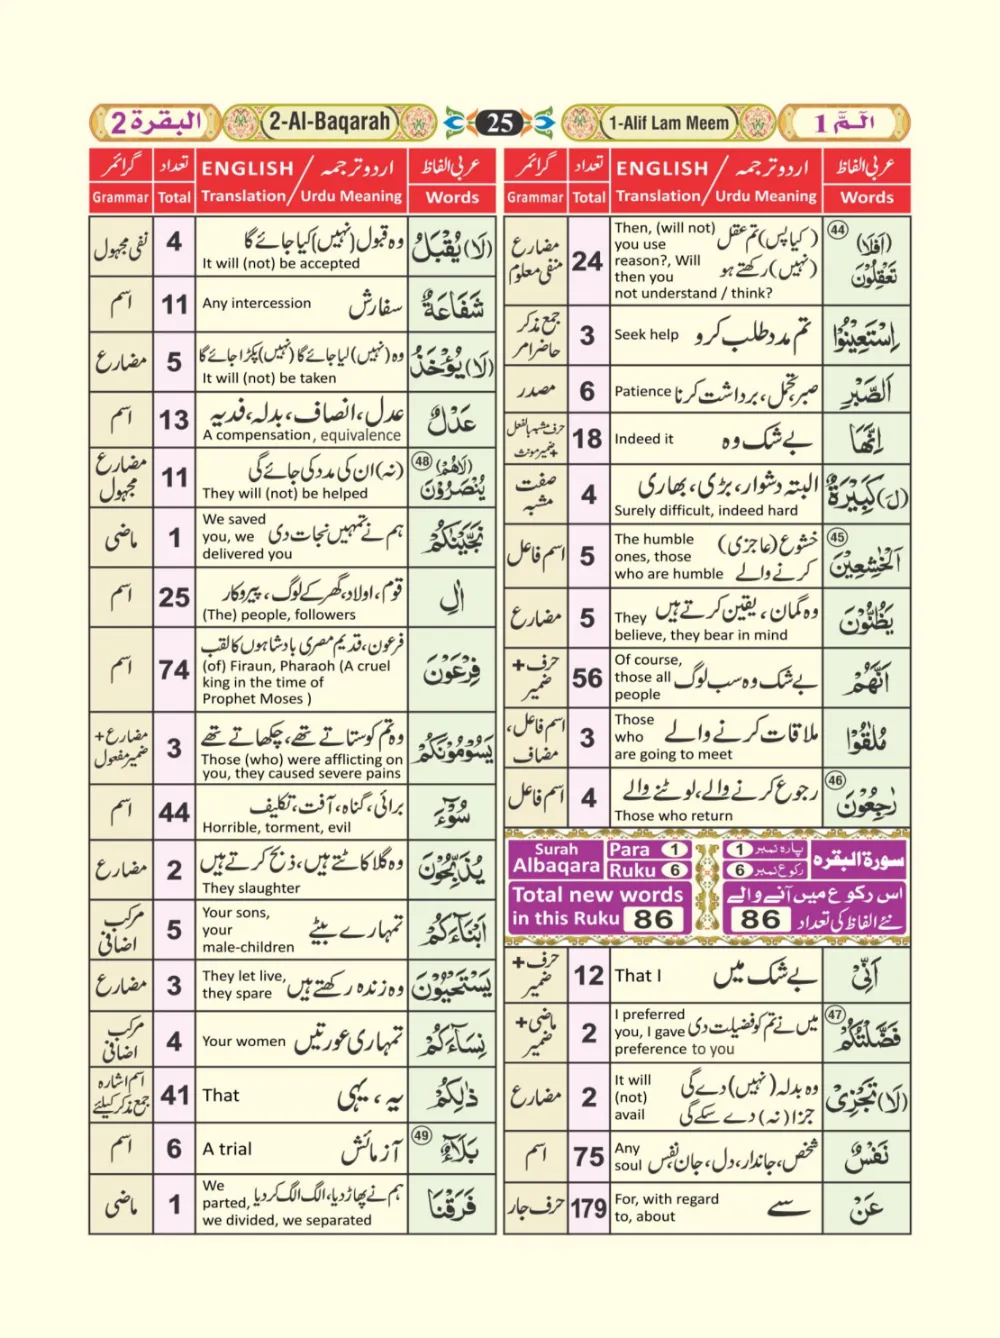 البقرة 2
2-Al-Baqarah
25
1-Alif Lam Meem
الٓمّٓ 1
عربی الفاظ
اردو ترجمہ / ENGLISH
تعداد
گرائمر
Words
Translation / Urdu Meaning
Total
Grammar
44
(اَفَلَا) تَعْقِلُوْنَ
(کیا پس) تم عقل
(نہیں) رکھتے ہو
Then, (will not)
you use
reason?, Will
then you
not understand / think?
24
مضارع
منفی معلوم
اِسْتَعِيْنُوْا
تم مدد طلب کرو
Seek help
3
جمع مذکر
حاضر امر
اَلصَّبْرِ
صبر تحمل، برداشت کرنا
Patience
6
مصدر
اِنَّهَا
بے شک وہ
Indeed it
18
حرف مشبہ بالفعل
+ضمیر مونث
(لَ) كَبِيْرَةٌ
البتہ دشوار، بڑی، بھاری
Surely difficult, indeed hard
4
صفت
مشبہ
45
اَلْخٰشِعِيْنَ
خشوع (عاجزی)
کرنے والے
The humble
ones, those
who are humble
5
اسم فاعل
يَظُنُّوْنَ
وہ گمان، یقین کرتے ہیں
They
believe, they bear in mind
5
مضارع
اَنَّهُمْ
بے شک وہ سب لوگ
Of course,
those all
people
56
حرف +
ضمیر
مُلٰقُوْا
ملاقات کرنے والے
Those
who
are going to meet
3
اسم فاعل،
مضاف
46
رٰجِعُوْنَ
رجوع کرنے والے، لوٹنے والے
Those who return
4
اسم فاعل
Surah
Albaqara
Para 1
Ruku 6
پارہ نمبر 1
رکوع نمبر 6
سورۃ البقرہ
Total new words
in this Ruku 86
اس رکوع میں آنے والے
نئے الفاظ کی تعداد 86
اَنِّيْ
بے شک میں
That I
12
حرف +
ضمیر
47
فَضَّلْتُكُمْ
میں نے تم کو فضیلت دی
I preferred
you, I gave
preference to you
2
ماضی +
ضمیر
(لَا) تَجْزِيْ
وہ بدلہ (نہیں) دے گی
جزا (نہ) دے سکے گی
It will
(not)
avail
2
مضارع
نَفْسٌ
شخص، جاندار، دل، جان نفس
Any
soul
75
اسم
عَنْ
سے
For, with regard
to, about
179
حرف جار
عربی الفاظ
اردو ترجمہ / ENGLISH
تعداد
گرائمر
Words
Translation / Urdu Meaning
Total
Grammar
(لَا) يُقْبَلُ
وہ قبول (نہیں) کیا جائے گا
It will (not) be accepted
4
نفی مجہول
شَفَاعَةٌ
سفارش
Any intercession
11
اسم
(لَا) يُؤْخَذُ
وہ (نہیں) لیا جائے گا (نہیں) پکڑا جائے گا
It will (not) be taken
5
مضارع
عَدْلٌ
عدل، انصاف، بدلہ، فدیہ
A compensation, equivalence
13
اسم
48
(لَاهُمْ) يُنْصَرُوْنَ
(نہ) ان کی مدد کی جائے گی
They will (not) be helped
11
مضارع
مجہول
نَجَّيْنٰكُمْ
ہم نے تمہیں نجات دی
We saved
you, we
delivered you
1
ماضی
اٰلِ
قوم، اولاد، گھر کے لوگ، پیروکار
(The) people, followers
25
اسم
فِرْعَوْنَ
فرعون، قدیم مصری بادشاہوں کا لقب
(of) Firaun, Pharaoh (A cruel
king in the time of
Prophet Moses )
74
اسم
يَسُوْمُوْنَكُمْ
وہ تم کو ستاتے تھے، چکھاتے تھے
Those (who) were afflicting on
you, they caused severe pains
3
مضارع +
ضمیر مفعول
سُوْٓءَ
برائی، گناہ، آفت، تکلیف
Horrible, torment, evil
44
اسم
يُذَبِّحُوْنَ
وہ گلا کاٹتے ہیں، ذبح کرتے ہیں
They slaughter
2
مضارع
اَبْنَآءَكُمْ
تمہارے بیٹے
Your sons,
your
male-children
5
مرکب
اضافی
يَسْتَحْيُوْنَ
وہ زندہ رکھتے ہیں
They let live,
they spare
3
مضارع
نِسَآءَكُمْ
تمہاری عورتیں
Your women
4
مرکب
اضافی
ذٰلِكُمْ
یہ، یہی
That
41
اسم اشارہ
جمع مذکر کیلئے
49
بَلَآءٌ
آزمائش
A trial
6
اسم
فَرَقْنَا
ہم نے پھاڑ دیا، الگ الگ کر دیا
We
parted,
we divided, we separated
1
ماضی